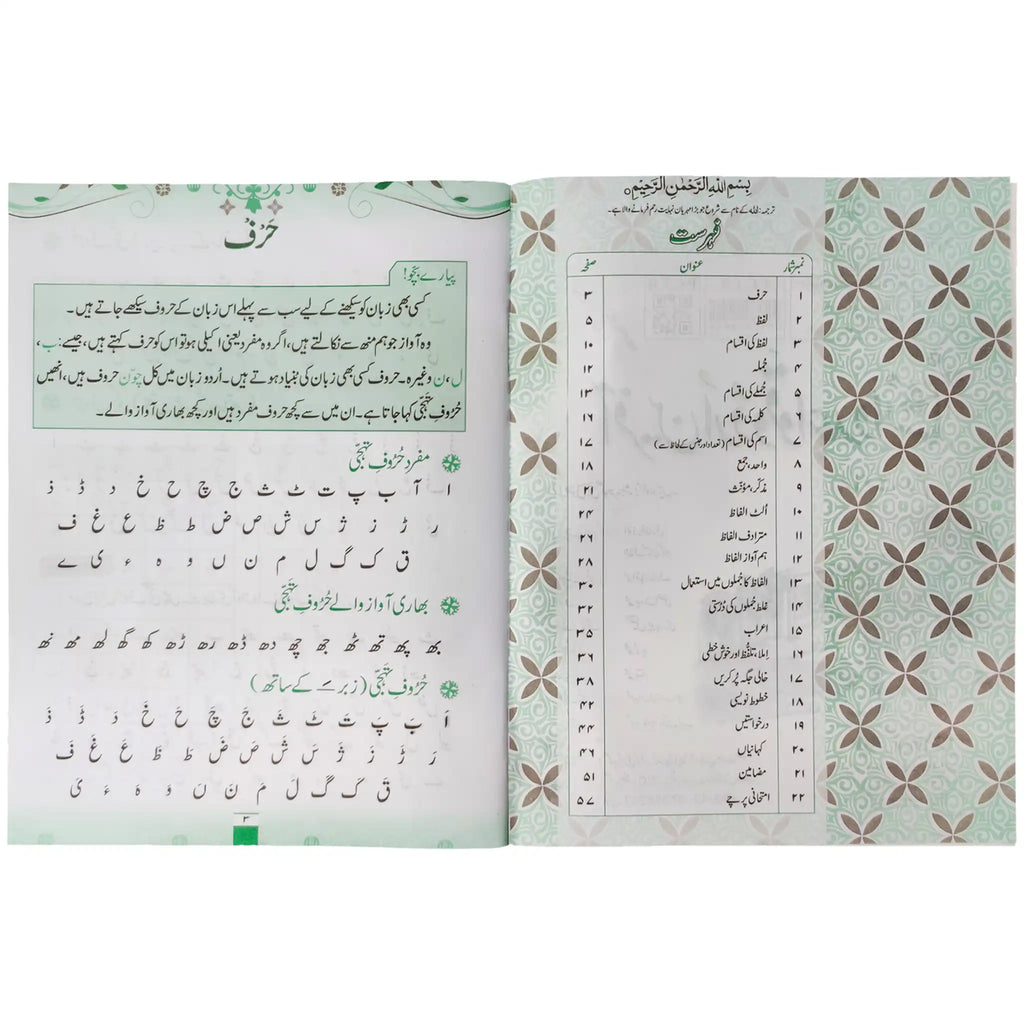 بِسْمِ اللهِ الرَّحْمٰنِ الرَّحِيْمِ
ترجمہ: اللہ کے نام سے شروع جو بڑا مہربان نہایت رحم فرمانے والا ہے۔
فہرست
نمبر شمار عنوان صفحہ
۱ حرف ۳
۲ لفظ ۵
۳ لفظ کی اقسام ۱۰
۴ جُملہ ۱۲
۵ جُملے کی اقسام ۱۳
۶ کلمہ کی اقسام ۱۶
۷ اسم کی اقسام (تعداد اور جنس کے لحاظ سے) ۱۷
۸ واحد، جمع ۱۸
۹ مذکّر، مؤنّث ۲۱
۱۰ اُلٹ الفاظ ۲۴
۱۱ مترادف الفاظ ۲۶
۱۲ ہم آواز الفاظ ۲۸
۱۳ الفاظ کا جُملوں میں استعمال ۳۰
۱۴ غلط جُملوں کی دُرستی ۳۲
۱۵ اعراب ۳۵
۱۶ اِملا، تلفّظ اور خوش خطی ۳۶
۱۷ خالی جگہ پُر کریں ۳۸
۱۸ خطوط نویسی ۴۲
۱۹ درخواستیں ۴۴
۲۰ کہانیاں ۴۶
۲۱ مضامین ۵۱
۲۲ امتحانی پرچے ۵۷
حَرْف
پیارے بچّو!
کسی بھی زبان کو سیکھنے کے لیے سب سے پہلے اس زبان کے حروف سیکھے جاتے ہیں۔
وہ آواز جو ہم منھ سے نکالتے ہیں، اگر وہ مفرد یعنی اکیلی ہو تو اس کو حرف کہتے ہیں، جیسے: ب،
ل، ن وغیرہ۔ حروف کسی بھی زبان کی بنیاد ہوتے ہیں۔ اُردو زبان میں کل چوّن حروف ہیں، انھیں
حُرُوفِ تہجّی کہا جاتا ہے۔ ان میں سے کچھ حروف مفرد ہیں اور کچھ بھاری آواز والے۔
مفرد حُرُوفِ تہجّی
ا آ ب پ ت ٹ ث ج چ ح خ د ڈ ذ
ر ڑ ز ژ س ش ص ض ط ظ ع غ ف
ق ک گ ل م ن ں و ہ ء ی ے
بھاری آواز والے حُرُوفِ تَہَجّی
بھ پھ تھ ٹھ جھ چھ دھ ڈھ رھ ڑھ کھ گھ لھ مھ نھ
حُرُوفِ تَہَجّی (زبر ـَ کے ساتھ)
اَ بَ پَ تَ ٹَ ثَ جَ چَ حَ خَ دَ ڈَ ذَ
رَ ڑَ زَ ژَ سَ شَ صَ ضَ طَ ظَ عَ غَ فَ
قَ کَ گَ لَ مَ نَ ں وَ ہَ ءَ یَ
۳